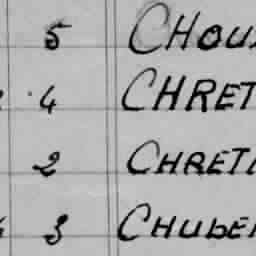 5 CHOU
4 CHRET
2 CHRETI
3 CHUBE